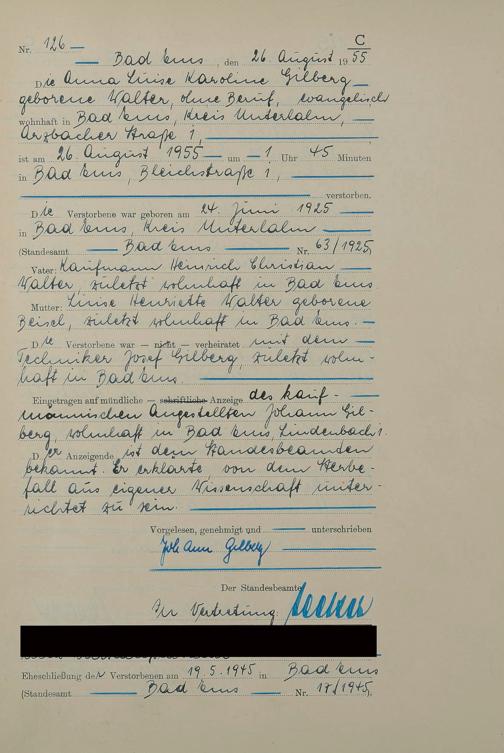 C
Nr. 126
Bad Ems, den 26. August 1955
Die Anna Luise Karoline Gilberg
geborene Walter, ohne Beruf, evangelisch
wohnhaft in Bad Ems, Kreis Unterlahn,
Arzbacher Straße 1,
ist am 26. August 1955 um 1 Uhr 45 Minuten
in Bad Ems, Bleichstraße 1,
verstorben.
Die Verstorbene war geboren am 24. Juni 1925
in Bad Ems, Kreis Unterlahn
(Standesamt Bad Ems Nr. 63/1925)
Vater: Kaufmann Heinrich Christian
Walter, zuletzt wohnhaft in Bad Ems
Mutter: Luise Henriette Walter geborene
Beisel, zuletzt wohnhaft in Bad Ems.
Die Verstorbene war — nicht — verheiratet mit dem
Techniker Josef Gilberg, zuletzt wohn-
haft in Bad Ems.
Eingetragen auf mündliche — schriftliche — Anzeige des kauf-
männischen Angestellten Johann Gil-
berg, wohnhaft in Bad Ems,
Der Anzeigende ist dem Standesbeamten
bekannt. Er erklärte von dem Sterbe-
fall aus eigener Wissenschaft unter-
richtet zu sein.
Vorgelesen, genehmigt und unterschrieben
Johann Gilberg
Der Standesbeamte
In Vertretung:
Eheschließung der Verstorbenen am 19.5.1945 in Bad Ems
(Standesamt Bad Ems Nr. 17/1945)